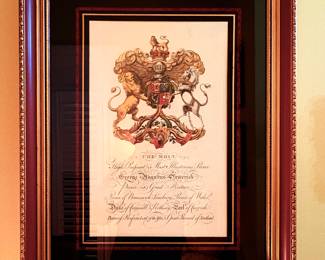 THE MOST
High, Puissant & Most Illustrious Prince
George Augustus Frederick
Prince of Great Britain
Prince of Brunswick Lunenburg, Prince of Wales
Duke of Cornwall & Rothsay, Earl of
Baron of Renfrew, Lord of the Isles, & Great Steward of Scotland